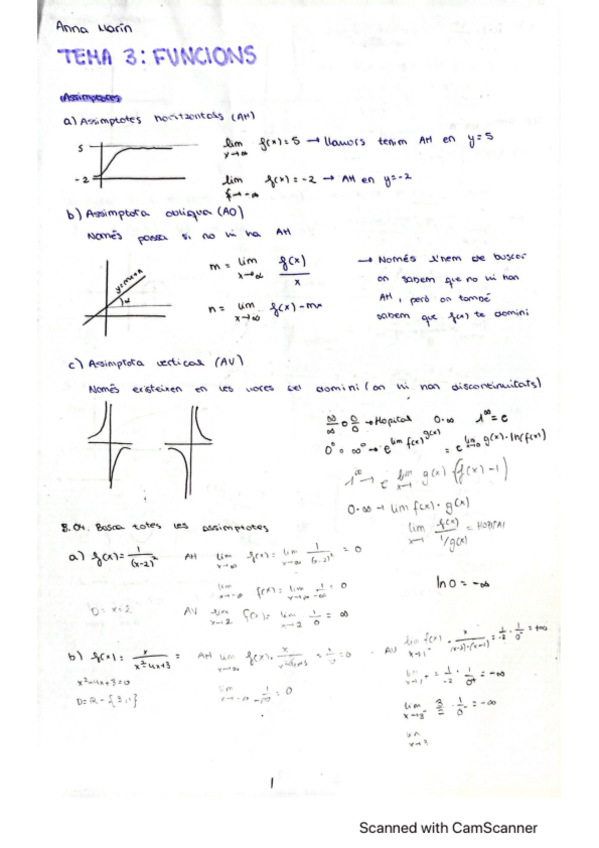 Anna Marín
TEMA 3: FUNCIONS
Assimptotes
a) Assimptotes horitzontals (AH)
5
-2
lim x→∞ f(x) = 5 → llavors tenim AH en y = 5
lim x→-∞ f(x) = -2 → AH en y = -2
b) Assimptota obliqua (AO)
Només passa si no hi ha AH
y=mx+n
α
m = lim x→∞ f(x)/x
n = lim x→∞ f(x) - mx
→ Només l'hem de buscar
on sabem que no hi han
AH, però on també
sabem que f(x) té domini
c) Assimptota vertical (AV)
Només existeixen en les vores del domini (on hi han discontinuitats)
∞/∞ o 0/0 → Hopital 0·∞ 1^∞ = e
0^0 = ∞^0 → e^lim f(x)^g(x) = e^lim g(x)·ln(f(x))
1^∞ → e lim g(x)·(f(x)-1)
0·∞ → lim f(x)·g(x)
lim f(x)/1/g(x) = HOPITAL
ln 0 = -∞
8.04. Busca totes les assimptotes
a) f(x) = 1/(x-2)² AH lim x→∞ f(x) = lim x→∞ 1/(x-2)² = 0
lim x→-∞ f(x) = lim = 0
D = x=2 AV lim x→2 f(x) = lim x→2 1/0 = ∞
b) f(x) = x/x²-4x+3 = AH lim f(x) = 0
x²-4x+3=0
D=R-{3,1}
lim x→-∞ = 0
AV lim x→1⁻ f(x) = x/(x-3)·(x-1) = 1/-2 · 1/0⁻ = +∞
lim x→1⁺ = 1/-2 · 1/0⁺ = -∞
lim x→3⁻ 3/2 · 1/0⁻ = -∞
1
Scanned with CamScanner